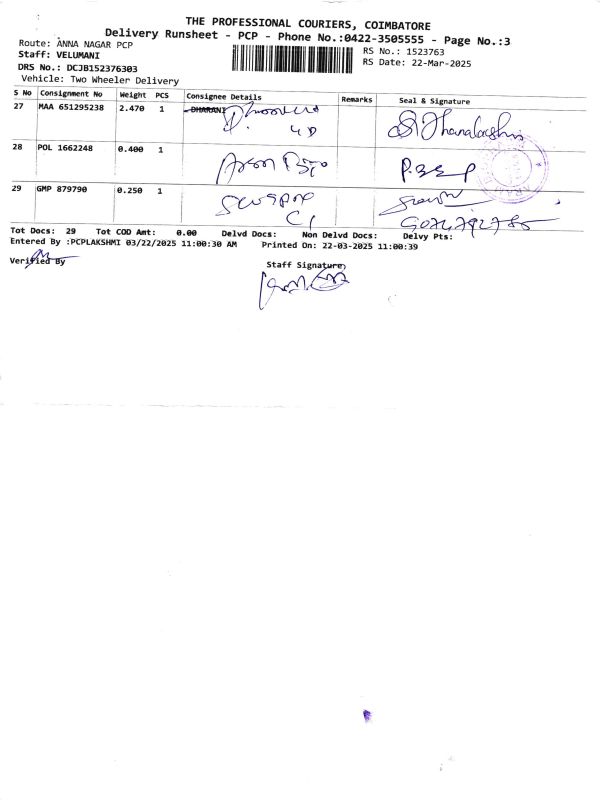 THE PROFESSIONAL COURIERS, COIMBATORE
Delivery Runsheet - PCP - Phone No.:0422-3505555 - Page No.:3
Route: ANNA NAGAR PCP
RS No.: 1523763
Staff: VELUMANI
RS Date: 22-Mar-2025
DRS No.: DCJB152376303
Vehicle: Two Wheeler Delivery
S No Consignment No Weight PCS Consignee Details Remarks Seal & Signature
27 MAA 651295238 2.470 1 DHARANI
28 POL 1662248 0.400 1
29 GMP 879790 0.250 1
Tot Docs: 29 Tot COD Amt: 0.00 Delvd Docs: Non Delvd Docs: Delvy Pts:
Entered By :PCPLAKSHMI 03/22/2025 11:00:30 AM Printed On: 22-03-2025 11:00:39
Verified By
Staff Signature